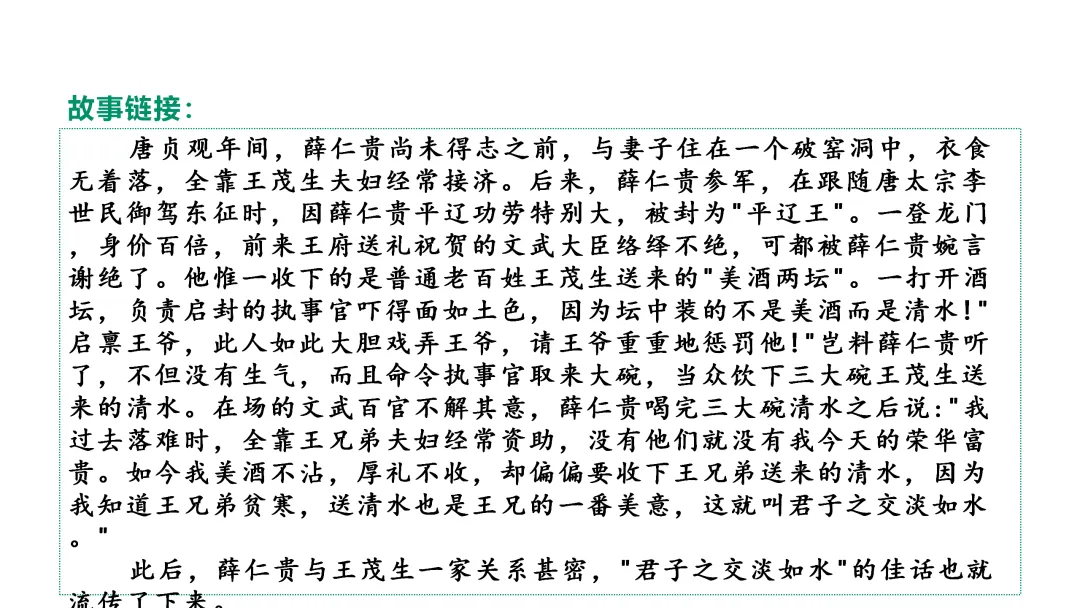 故事链接：
唐贞观年间，薛仁贵尚未得志之前，与妻子住在一个破窑洞中，衣食
无着落，全靠王茂生夫妇经常接济。后来，薛仁贵参军，在跟随唐太宗李
世民御驾东征时，因薛仁贵平辽功劳特别大，被封为"平辽王"。一登龙门
，身价百倍，前来王府送礼祝贺的文武大臣络绎不绝，可都被薛仁贵婉言
谢绝了。他惟一收下的是普通老百姓王茂生送来的"美酒两坛"。一打开酒
坛，负责启封的执事官吓得面如土色，因为坛中装的不是美酒而是清水!"
启禀王爷，此人如此大胆戏弄王爷，请王爷重重地惩罚他!"岂料薛仁贵听
了，不但没有生气，而且命令执事官取来大碗，当众饮下三大碗王茂生送
来的清水。在场的文武百官不解其意，薛仁贵喝完三大碗清水之后说:"我
过去落难时，全靠王兄弟夫妇经常资助，没有他们就没有我今天的荣华富
贵。如今我美酒不沾，厚礼不收，却偏偏要收下王兄弟送来的清水，因为
我知道王兄弟贫寒，送清水也是王兄的一番美意，这就叫君子之交淡如水
。"
此后，薛仁贵与王茂生一家关系甚密，"君子之交淡如水"的佳话也就
流传了下来。